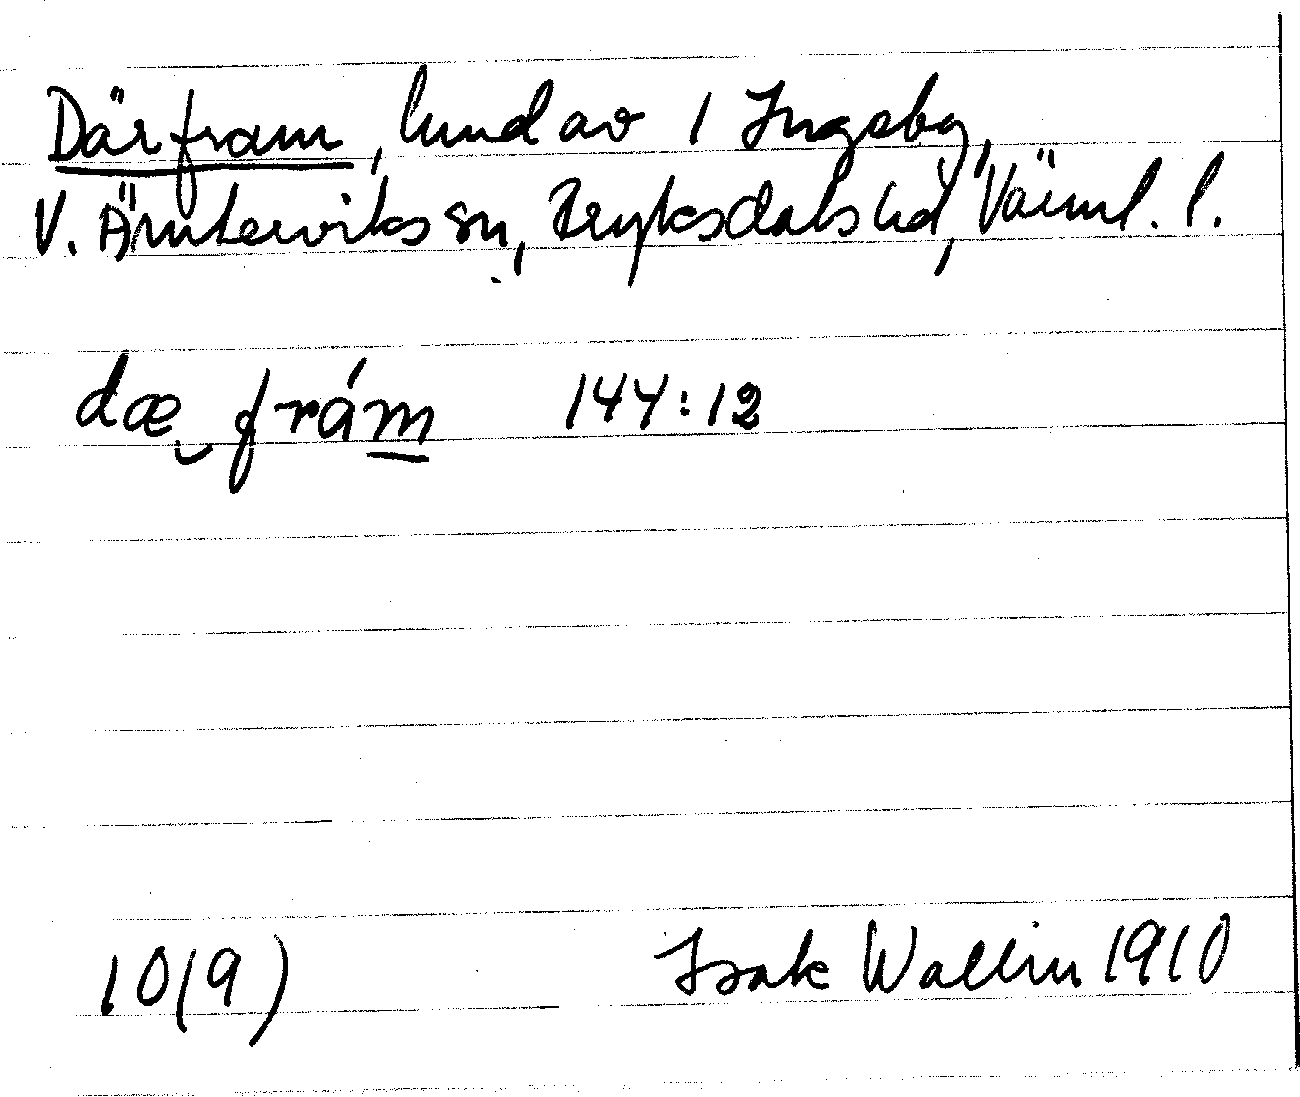 Därfram, lund av 1 Ingeby,
V. Ämterviks sn, Fryksdals hd, Värml. l.
dæ frám 144:12
10(9) Isak Wallin 1910